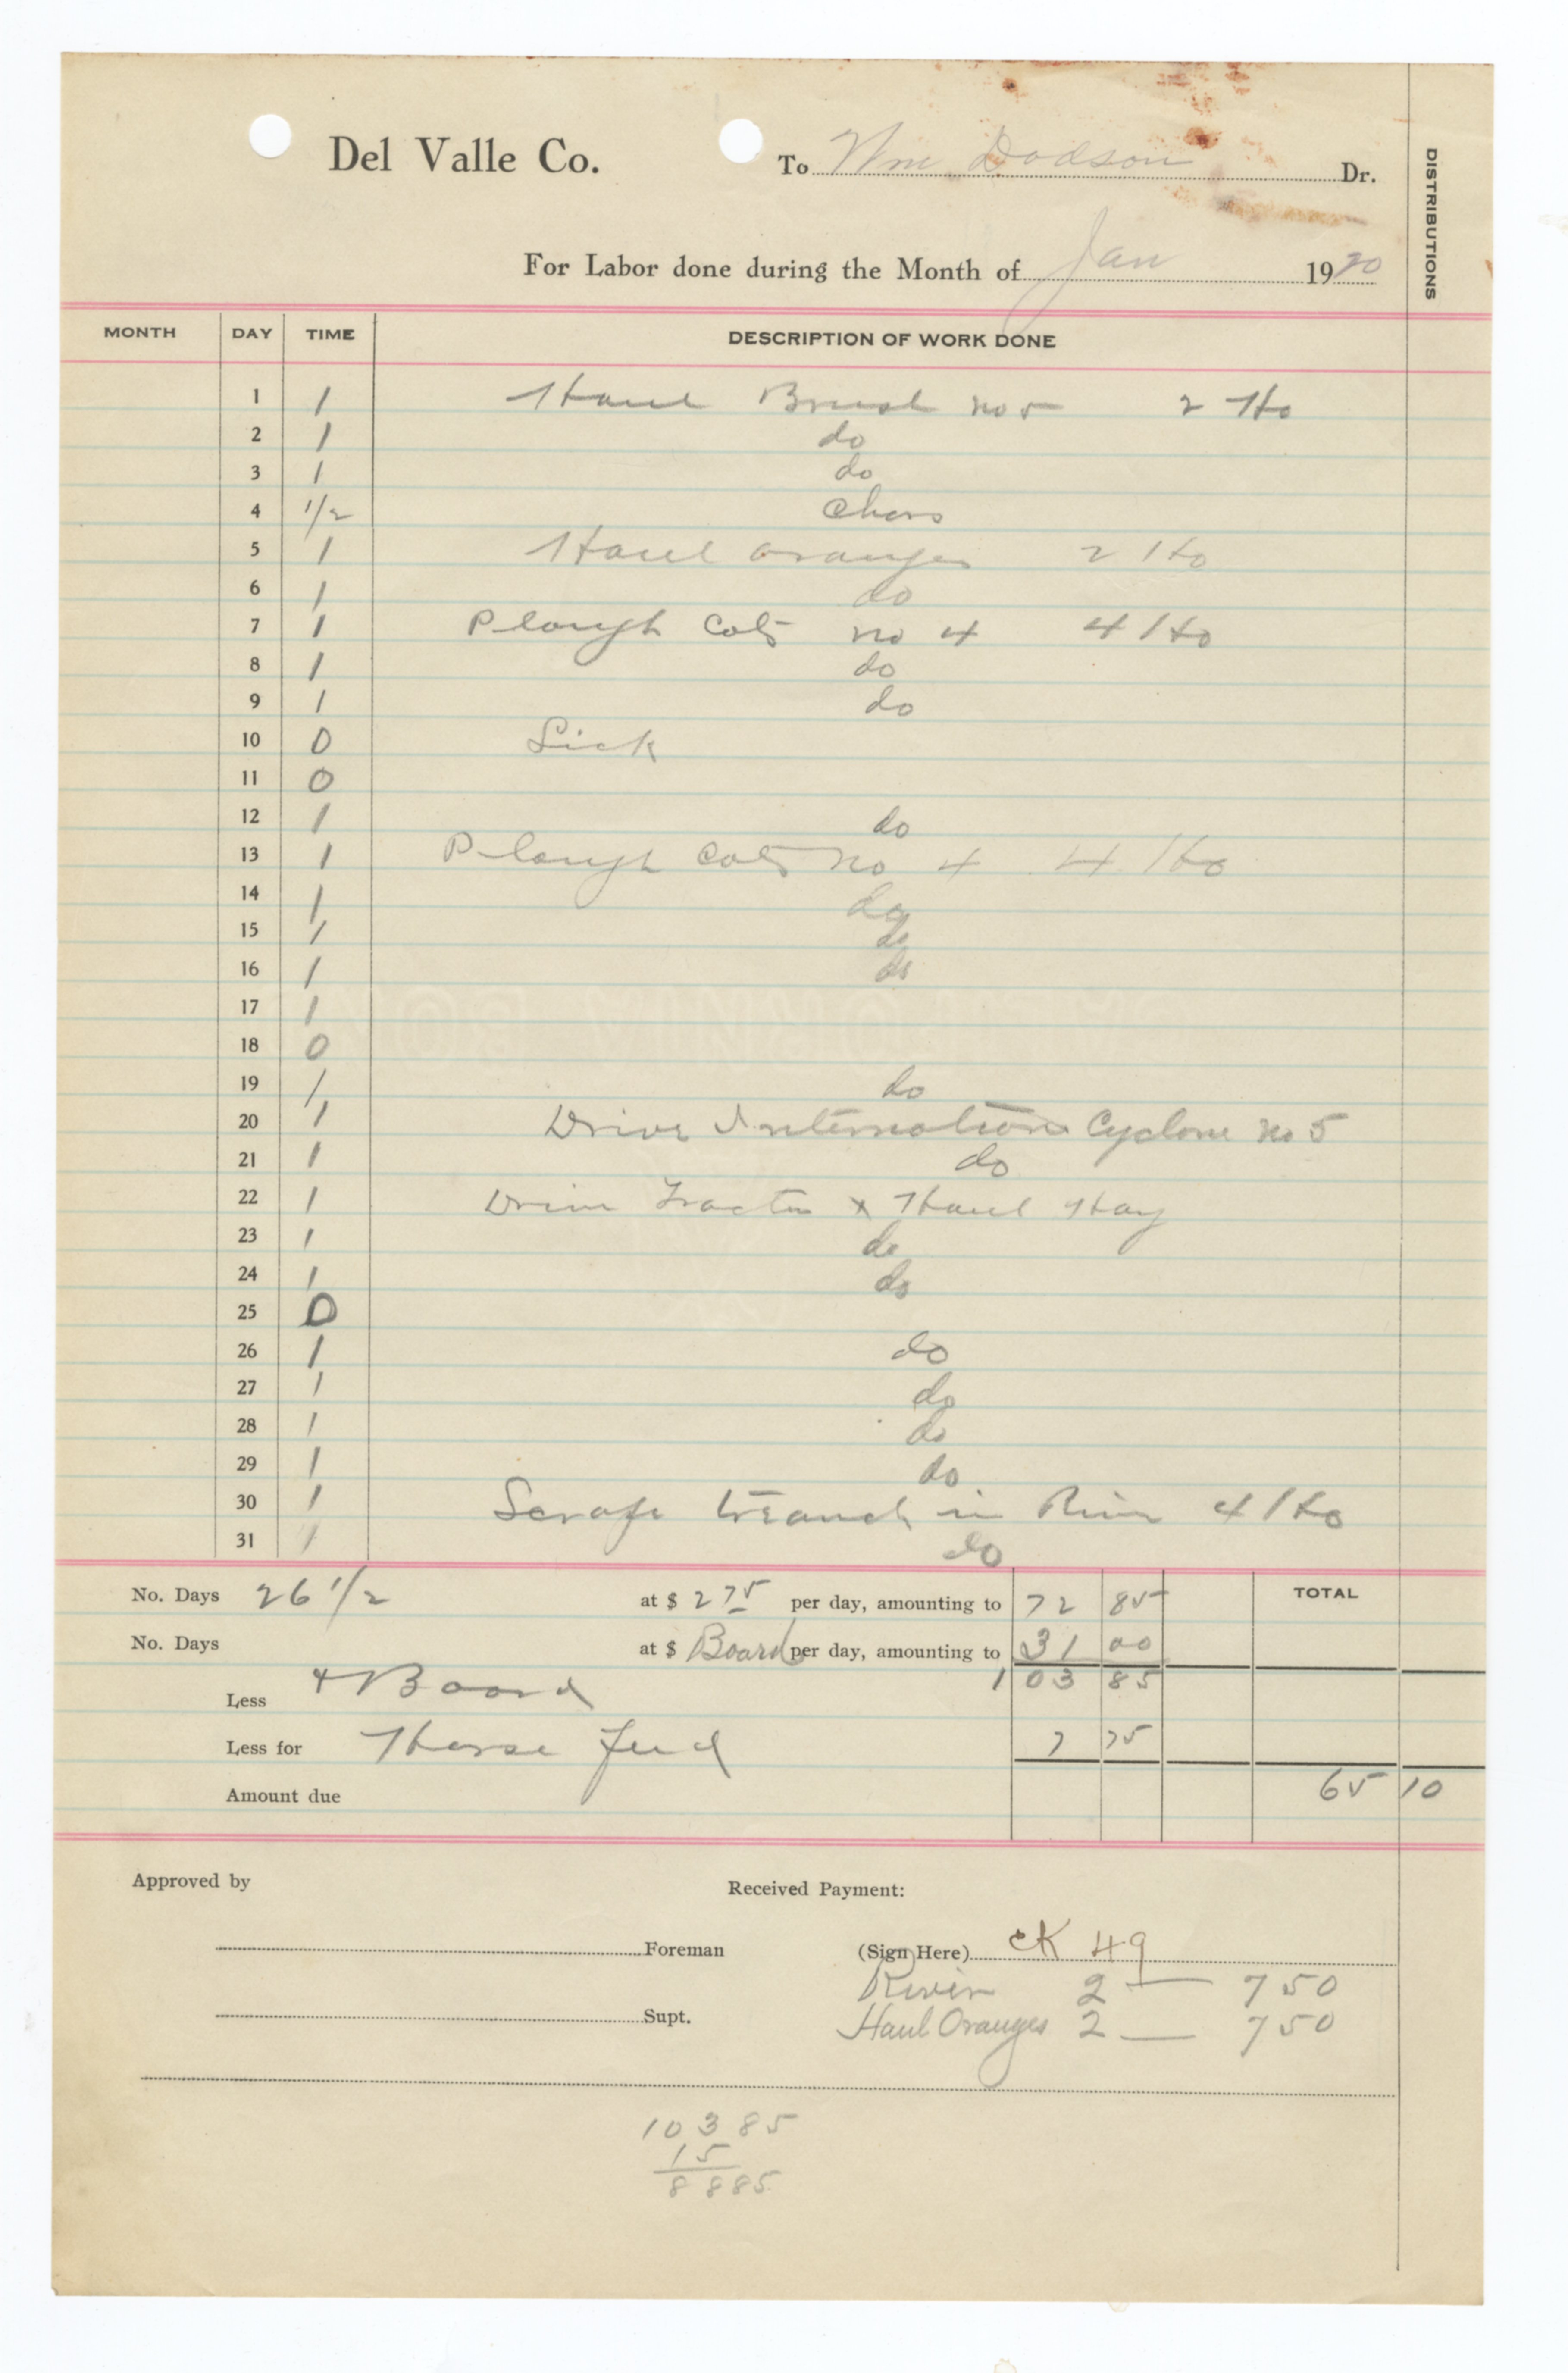 Del Valle Co. To Wm Dodson Dr.
DISTRIBUTIONS
For Labor done during the Month of Jan 1920
MONTH DAY TIME DESCRIPTION OF WORK DONE
1 1 Haul Brush no 5 2 Ho
2 1 do
3 1 do
4 1/2 Chors
5 1 Haul oranges 2 Ho
6 1 do
7 1 Plough Cots no 4 4 Ho
8 1 do
9 1 do
10 0 Sick
11 0
12 1 do
13 1 Plough Cots no 4 4 Ho
14 1 do
15 1 do
16 1 do
17 1
18 0
19 1 do
20 1 Drive Internation Cyclone no 5
21 1 do
22 1 Drive Tractor & Haul Hay
23 1 do
24 1 do
25 0
26 1 do
27 1 do
28 1 do
29 1 do
30 1 Scrape in River 4 Ho
31 1 do
No. Days 26 1/2 at $ 2 75 per day, amounting to 72 85 TOTAL
No. Days at $ Board per day, amounting to 31 00
Less + Board 103 85
Less for Horse Feed 7 75
Amount due 65 10
Approved by Received Payment:
Foreman (Sign Here) CK 49
River 2 — 7 50
Supt. Haul Oranges 2 — 7 50
103 85
15
88 85